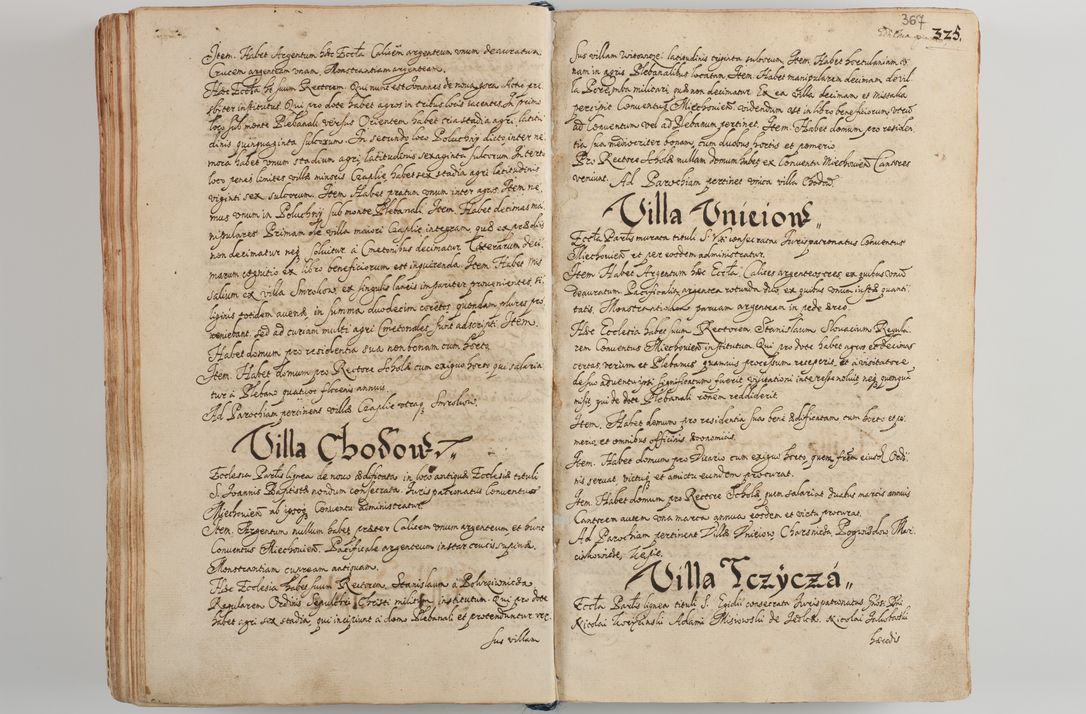 Item. Habet Argentum hæc Eccla Calicem argenteum vnum deauratum.
Crucem argenteam vnam, Monstrantiam argenteam.
Hæc Eccla habet suum Rectorem. Qui nunc est Joannes de noua gora Actu præ,
sbiter institutus. Qui pro dote habet agros in tribus locis iacentes. In primo
loco sub monte Plebanali versus Orientem habet tria stadia agri, latitu,
dinis quinquaginta sulcorum. In secundo loco Poluchny dicto inter ne,
mora habet vnum stadium agri latitudinis sexaginta sulcorum. In tertio
loco penes limites villæ minoris Czaplie habet sex stadia agri latitudinis
viginti sex sulcorum. Item. Habet pratum vnum inter agros. Item ne,
mus vnum in Poluchny sub monte Plebanali. Item. Habet decimas ma,
nipulares Primam de villa maiori Czaplie integram, quod ex prædio
non decimatur neq soluitur à Cmetonibus decimatur. Cæterarum deci,
marum cognitio ex libro beneficiorum est inquirenda. Item. Habet mis
salium ex villa Smrokow ex singulis laneis impariter prouenientes, si,
liginis totidem auenæ, in summa duodecim coretos quondam plures pro
ueniebant, sed ad curiam multi agri Cmetonales sunt adscripti. Item.
Habet domum pro residentia sua non bonam cum horto
Item. Habet domum pro Rectore Scholæ cum exiguo horto qui salaria
tur à Plebano quatuor florenis annuis.
Ad Parochiam pertinent villæ Czaplie vtraq, Smrokow
Villa Chodow
Ecclesia Parlis lignea de nouo ædificata in loco antiquæ Ecclesiæ tituli
S. Joannis Baptistæ nondum consecrata. Juris patronatus Conuentus
Miechouien ab ipsoq Conuentu administratur.
Item. Argentum nullum habet præter Calicem vnum argenteum et hunc
Conuentus Miechouien. Pacificale argenteum instar crucis supinæ.
Monstrantiam cupream antiquam.
Hæc Ecclesia habet suum Rectorem Stanislaum à
Regularem Ordinis Sepulchri Christi militum institutum. Qui pro dote
habet agri sex stadia, qui incipiunt à domo Plebanali et protenduntur ver,
sus villam
367
325.
sus villam latitudinis triginta sulcorum. Item. Habet hortulaniam v,
nam in agris Plebanalibus locatam. Item. Habet manipularem decimam de vil
la militari quæ non decimatur. Ex ea villa decimam et missalia
percipit Conuentus Miechouien videndum est in libro beneficiorum vtrū
ad Conuentum vel ad Plebanum pertinet. Item. Habet domum pro residen,
tia sua mediocriter bonam, cum duobus hortis et pomerio
Pro Rectore Scholæ nullam domum habet ex Conuentu Miechouien Cantores
veniunt. Ad Parochiam pertinet vnica villa Chodow.
Villa Vnieiow
Eccla Parlis murata tituli S. Viti consecrata Juris patronatus Conuentus
Miechouien et per eundem administratur.
Item Habet Argentum hæc Eccla. Calices argenteos tres ex quibus vnū
deauratum Pacificalia argentea rotunda duo ex quibus vnum iustæ quanti
tatis. Monstrantiam paruam argenteam in pede æreo.
Hæc Ecclesia habet suum Rectorem Stanislaum Slouacium Regula,
rem Conuentus Miechouien institutum. Qui pro dote habet agros et decimas
certas, verum et Plebanus quamuis processum receperit, et à visitatore
de suo aduentu ipsi significatum fuerit visitationi interesse noluit neq quenquā
misit qui de dote Plebanali rationem reddiderit
Item. Habet domum pro residentia suas bene ædificatam cum horto et po,
merio et omnibus officinis æconomicis
Item. Habet domum pro Vicario cum exiguo horto, quem frem eiusd Ordi,
nis seruat, victuq et amictu eundem procurat.
Item. Habet domum pro Rectore Scholæ quem salariat duabus marcis annuis
Cantorem autem vna marca annua eosdem et victu procurat.
Ad Parochiam pertinent Villæ Vnieiow Charsnicza Pogwizdow Mar,
Villa Tczyczá
Eccla Parlis lignea tituli S. Egidii consecrata Juris patronatus
Nicolai Adami Misiowski de Nicolai
hæredis